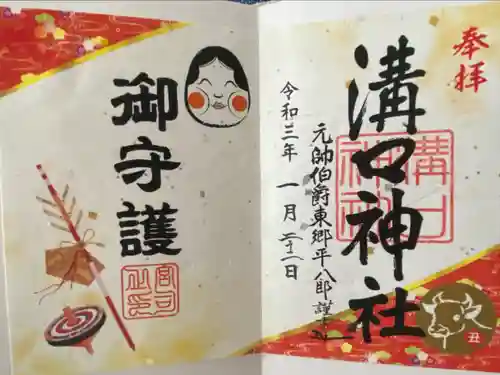 奉拝
溝口神社
溝口神社
元帥伯爵東郷平八郎謹書
令和三年 一月 二十二日
丑
御守護
宮司